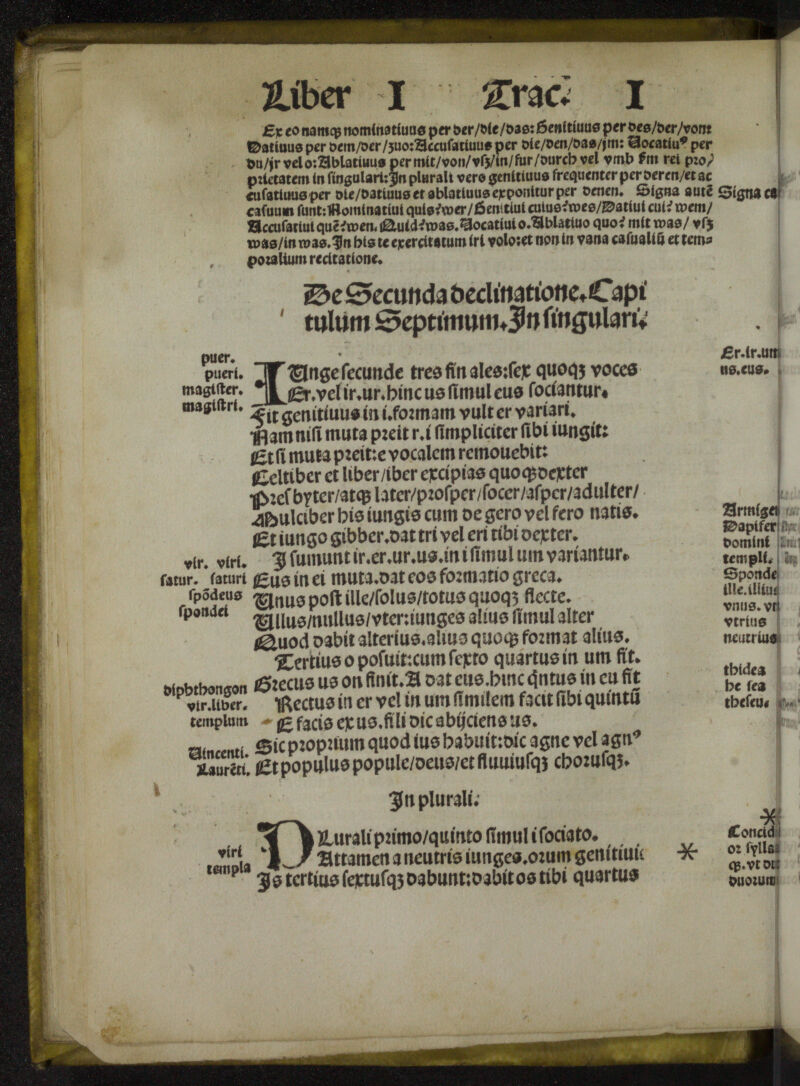 Liber I Trac: I
Ex eo namqʒ nominatiuus per der/die/das: Genitiuus per des/der/vom
Datiuus per dem/der/zuo: Accusatiuus per die/den/das/jm: Vocatiuꝰ per
du/jr vel o: Ablatiuus per mit/von/vſz/in/fur/durch vel vmb ſm rei pro/
prietatem in ſingulari: In plurali vero genitiuus frequenter per deren/et ac
cuſatiuus per die/datiuus et ablatiuus exponitur per denen. Signa autē
caſuum ſunt: Nominatiui quis? wer/Genitiui cuius? wes/Datiui cui? wem/
Accuſatiui quē? wen. Quid? was. Vocatiui o. Ablatiuo quo? mit was/ vſz
was/in was. In his te exercitatum iri volo: et non in vana caſualiū et tem-
poralium recitatione.
Signa ca
De Secunda declinatione. Capi
tulum Septimum. In ſingulari:
puer.
pueri.
magiſter.
magiſtri.
IUnge ſecunde tres finales: ſex quoqʒ voces
Er. vel ir. ur. hinc us ſimul eus ſociantur.
Fit genitiuus in i. formam vult er variari.
Nam niſi muta preit r. i ſimpliciter ſibi iungit:
Et ſi muta preit: e vocalem remouebit:
Celtiber et liber/iber excipias quoqʒ dexter
Preſbyter/atqʒ later/proſper/ſocer/aſper/adulter/
Mulciber his iungis cum de gero vel fero natis.
Et iungo gibber. dat tri vel eri tibi dexter.
I ſumunt ir. er. ur. us. in i ſimul um variantur.
Eus in ei muta. dat eos formatio greca.
Unus poſt ille/ſolus/totus quoqʒ flecte.
Ullus/nullus/vter: iunges alius ſimul alter
Quod dabit alterius. alius quoqʒ format alius.
Tertius o poſuit: cum ſexto quartus in um fit.
Grecus us on finit. A dat eus. hinc qntus in eu fit
Rectus in er vel in um ſimilem facit ſibi quintū
E facis ex us. fili dic abijciens us.
Sic proprium quod ius habuit: dic agne vel agnꝰ
Et populus popule/deus/et fluuiuſqʒ choruſqʒ.
vir. viri.
ſatur. ſaturi
ſpōdeus
ſpondei
diphthongon
vir. liber.
templum
Vincenti.
Laurēti.
Er. ir. um
us. eus.
Armiger
Dapifer
domini
templi.
Sponde
ille. illius
vnus. vn
vtrius
neutrius
thidea
he ſea
theſeu
In plurali:
PLurali primo/quinto ſimul i ſociato.
Attamen a neutris iunges. orum genitiui
Is tertius ſextuſqʒ dabunt: dabit os tibi quartus
viri
templa
Concid
or ſylla
qʒ. vt
duorum